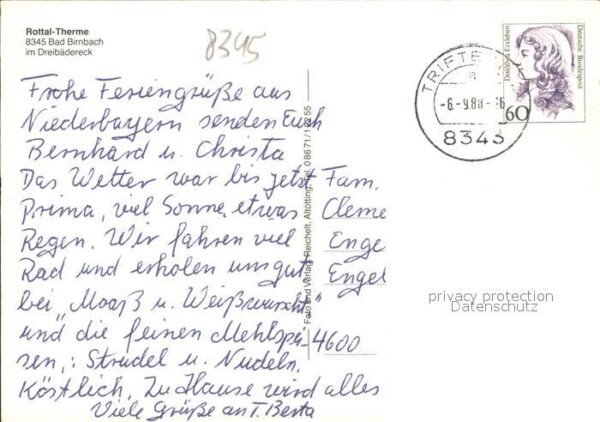 Rottal-Therme
8345 Bad Birnbach
im Dreibädereck
8345
Frohe Feriengrüße aus
Niederbayern senden Euch
Bernhard u. Christa
Das Wetter war bis jetzt
Prima, viel Sonne, etwas
Regen. Wir fahren viel
Rad und erholen uns gut
bei „Maaß u. Weißwurscht"
und die feinen Mehlspei-
sen,: Strudel u. Nudeln.
Köstlich. Zu Hause wird alles
Viele Grüße an T. Berta
Foto und Verlag Reichelt, Altötting, Tel. 08671/
55
TRIFTE
a
-6.-9.88-
8343
Dorothea Erxleben
Deutsche Bundespost
60
Fam.
Cleme
Enge
Engel
4600
privacy protection
Datenschutz